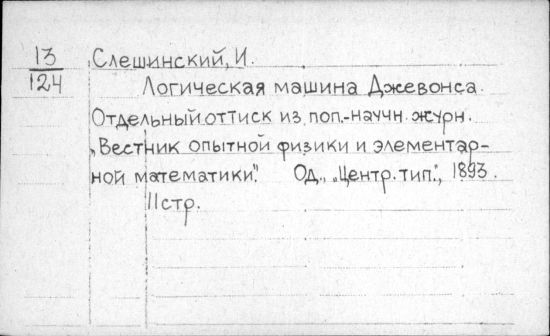 13
124
Слешинский, И.
Логическая машина Джевонса.
Отдельный оттиск из поп.-научн. журн.
„Вестник опытной физики и элементар-
ной математики". Од., „Центр. тип.", 1893.
11 стр.